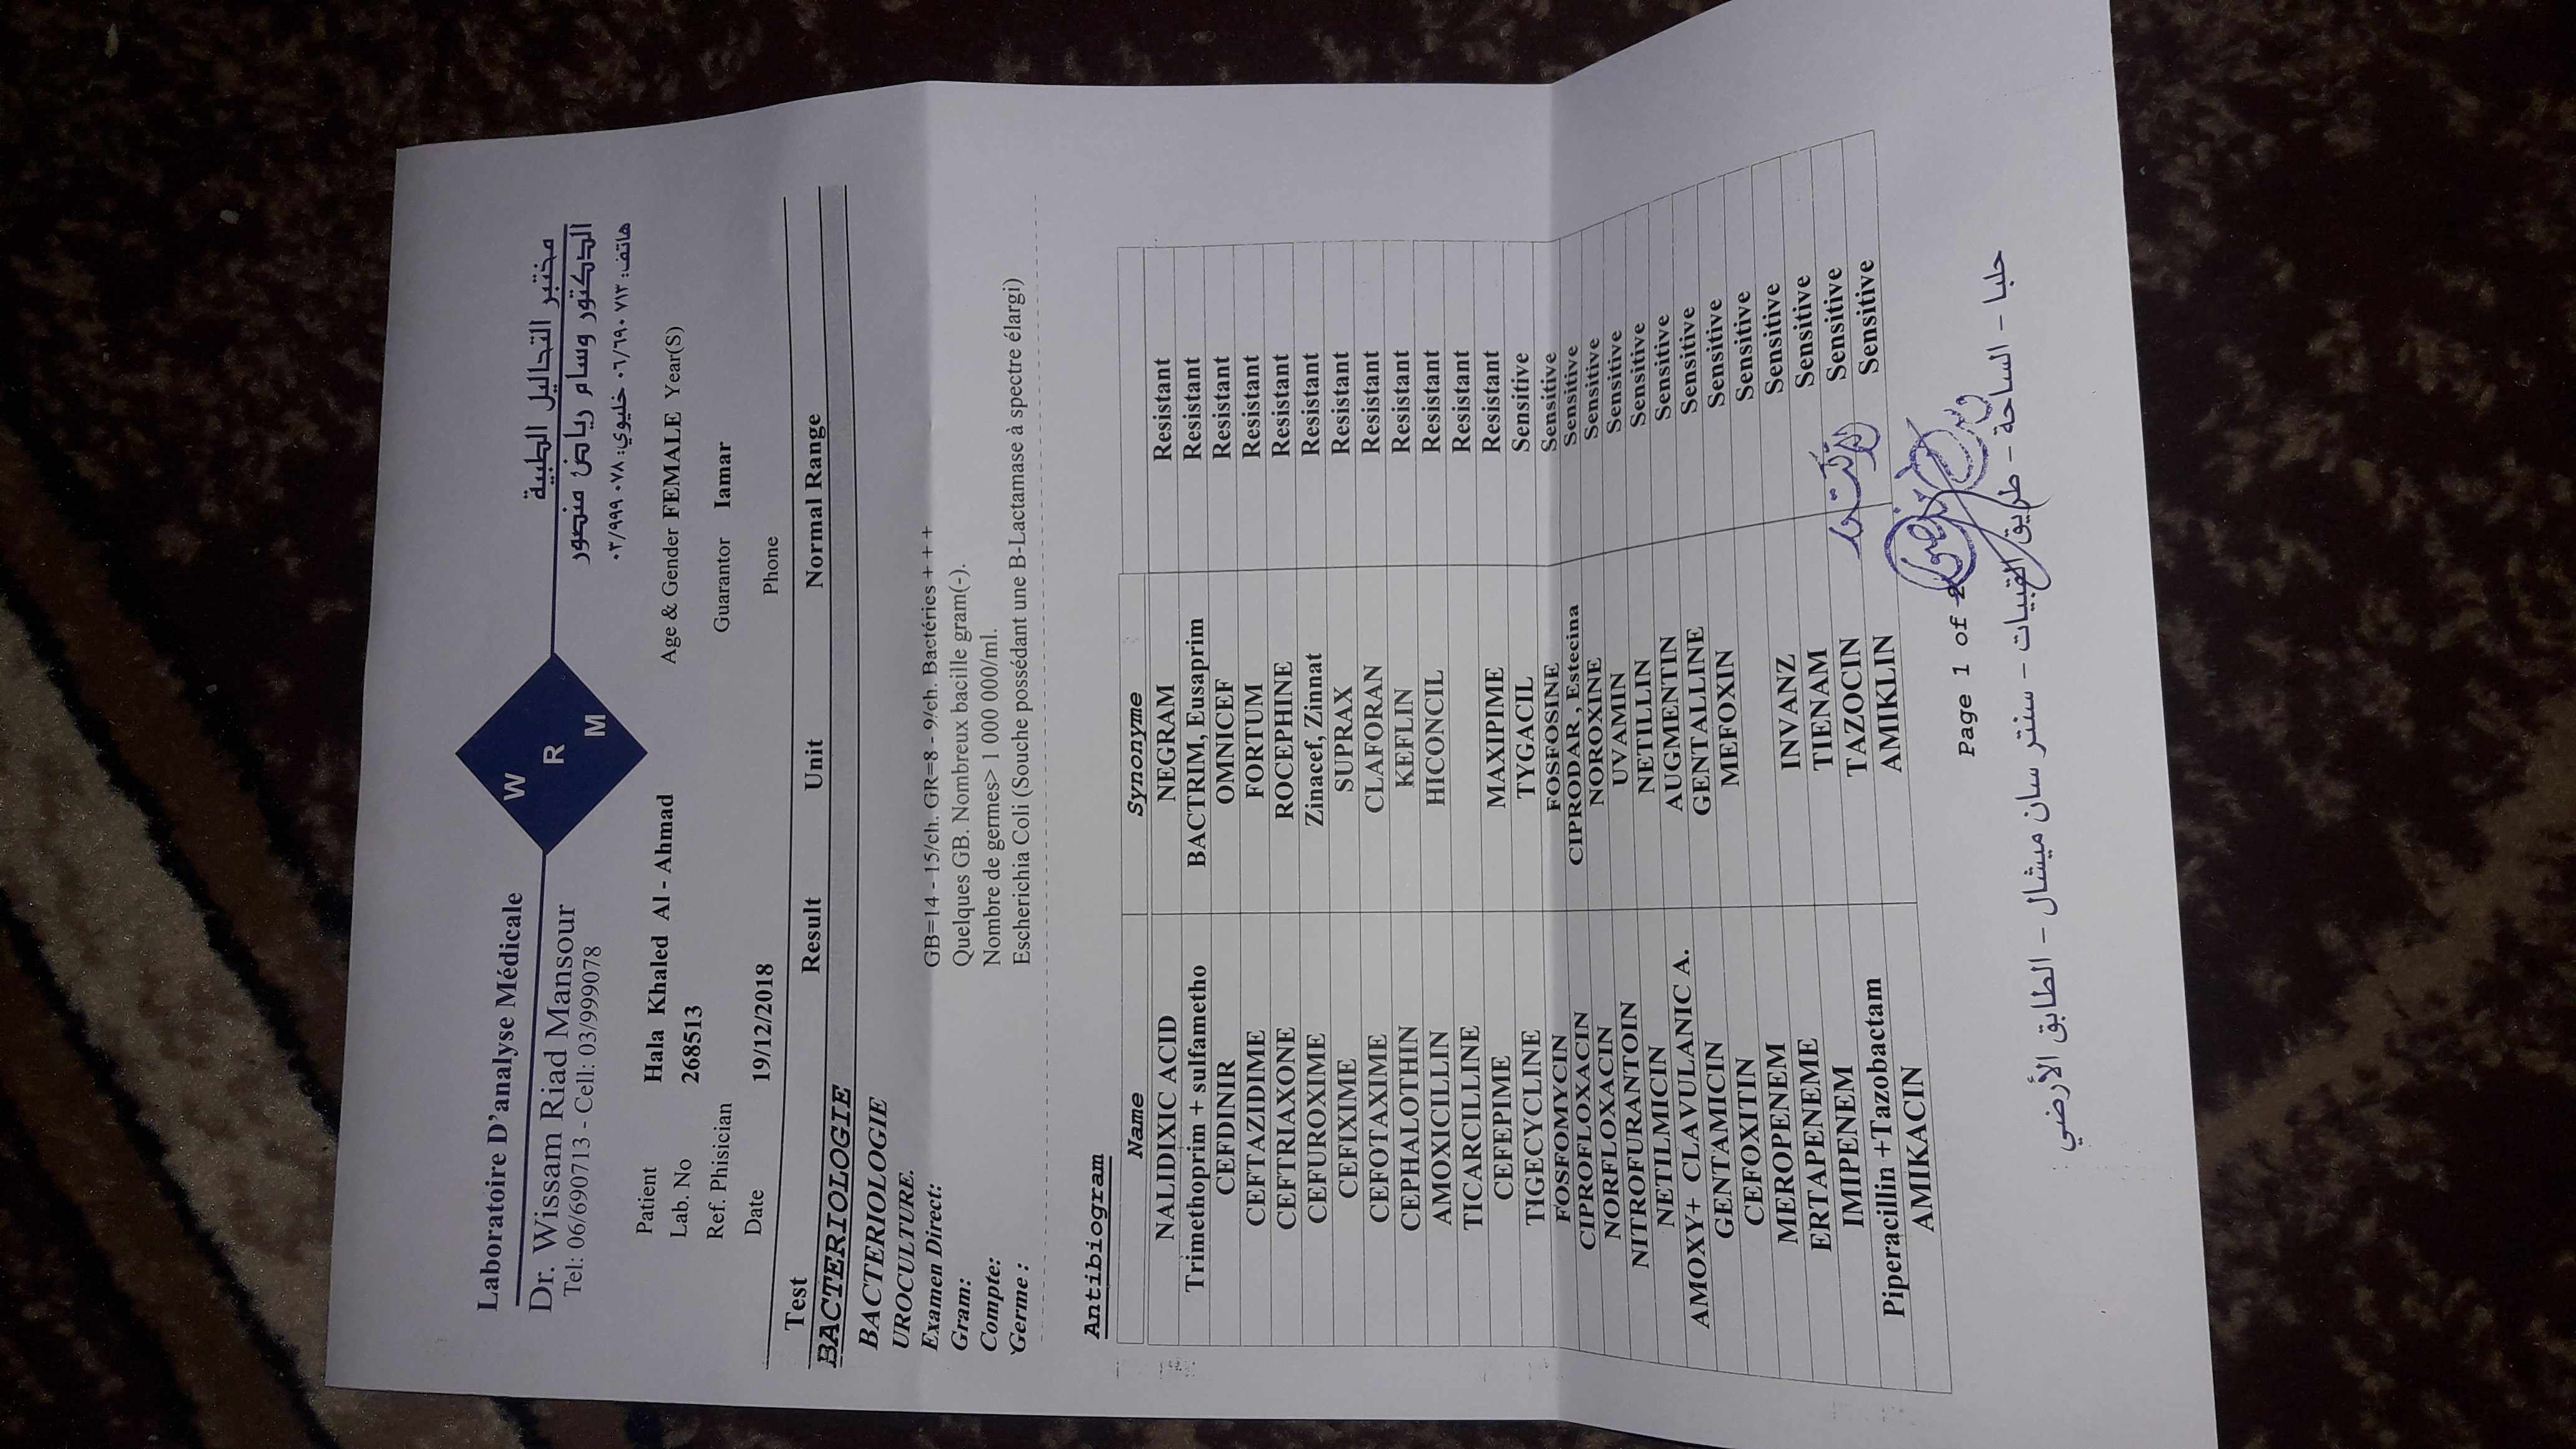 Laboratoire D'analyse Médicale
Dr. Wissam Riad Mansour
Tel: 06/690713 - Cell: 03/999078
W
R
M
مختبر التحاليل الطبية
الدكتور وسام رياض منصور
هاتف: ٠٦/٦٩٠٧١٣ خليوي: ٠٣/٩٩٩٠٧٨
Patient Hala Khaled Al - Ahmad Age & Gender FEMALE Year(S)
Lab. No 268513
Ref. Phisician Guarantor Iamar
Date 19/12/2018 Phone
Test Result Unit Normal Range
BACTERIOLOGIE
BACTERIOLOGIE
UROCULTURE.
Examen Direct: GB=14 - 15/ch. GR=8 - 9/ch. Bactéries + + +
Gram: Quelques GB. Nombreux bacille gram(-).
Compte: Nombre de germes> 1 000 000/ml.
Germe : Escherichia Coli (Souche possédant une B-Lactamase à spectre élargi)
Antibiogram
Name Synonyme
NALIDIXIC ACID NEGRAM Resistant
Trimethoprim + sulfametho BACTRIM, Eusaprim Resistant
CEFDINIR OMNICEF Resistant
CEFTAZIDIME FORTUM Resistant
CEFTRIAXONE ROCEPHINE Resistant
CEFUROXIME Zinacef, Zinnat Resistant
CEFIXIME SUPRAX Resistant
CEFOTAXIME CLAFORAN Resistant
CEPHALOTHIN KEFLIN Resistant
AMOXICILLIN HICONCIL Resistant
TICARCILLINE Resistant
CEFEPIME MAXIPIME Resistant
TIGECYCLINE TYGACIL Sensitive
FOSFOMYCIN FOSFOSINE Sensitive
CIPROFLOXACIN CIPRODAR , Estecina Sensitive
NORFLOXACIN NOROXINE Sensitive
NITROFURANTOIN UVAMIN Sensitive
NETILMICIN NETILLIN Sensitive
AMOXY+ CLAVULANIC A. AUGMENTIN Sensitive
GENTAMICIN GENTALLINE Sensitive
CEFOXITIN MEFOXIN Sensitive
MEROPENEM Sensitive
ERTAPENEME INVANZ Sensitive
IMIPENEM TIENAM Sensitive
Piperacillin +Tazobactam TAZOCIN Sensitive
AMIKACIN AMIKLIN Sensitive
Page 1 of 2
حلبا - الساحة - طريق القبيات - سنتر سان ميشال - الطابق الأرضي